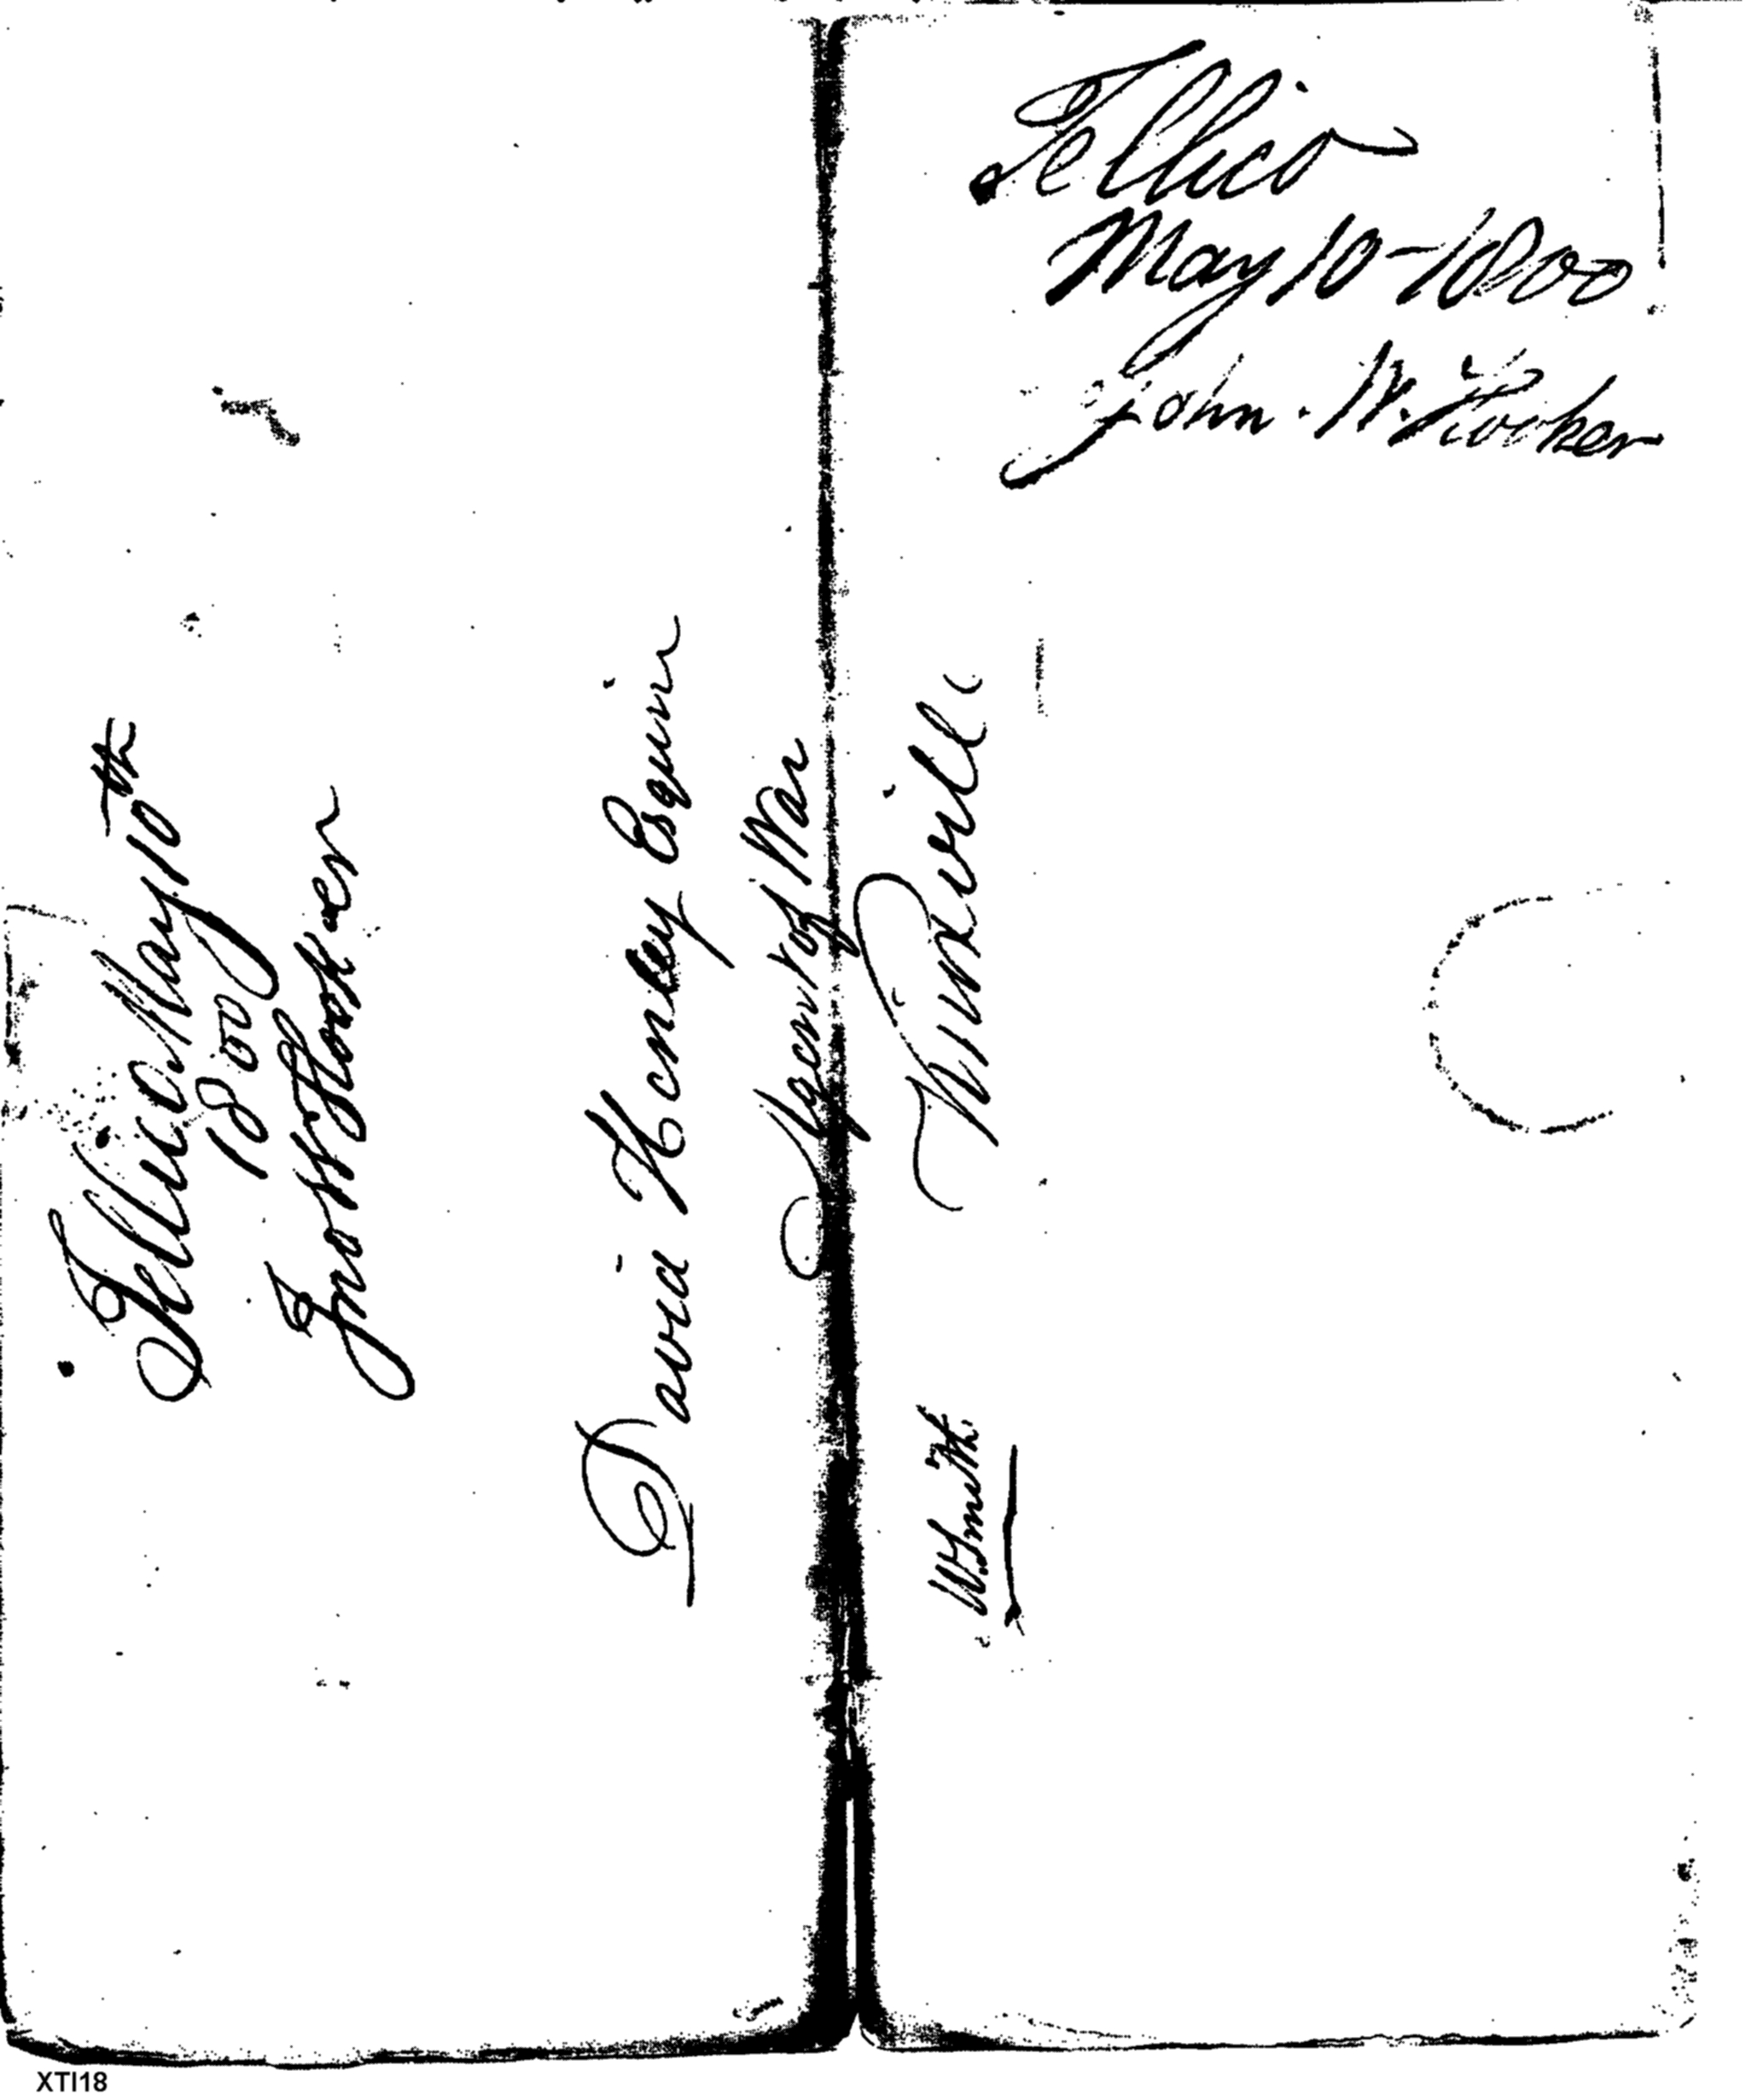 Tellico
May 10 - 1800
John. W. Hooker
Tellico May 10th
1800
Jno W Hooker
David Henley Esquire
Agent of War
Knoxville
W. Smith.
XTI18